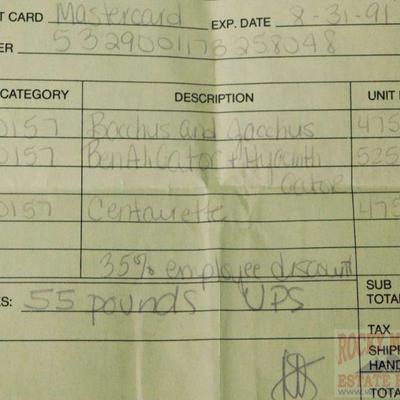 T CARD Mastercard EXP. DATE 8-31-91
ER 5329001173258048
CATEGORY DESCRIPTION UNIT
0157 Bacchus and Jacchus 475
0157 Ben Ali Gator & Hyacinth 525
Gator
0157 Centaurette 475
35% employee discount
ES: 55 pounds UPS
SUB
TOTAL
TAX
SHIPP
HAND
TOTA
ROCKY M
ESTATE